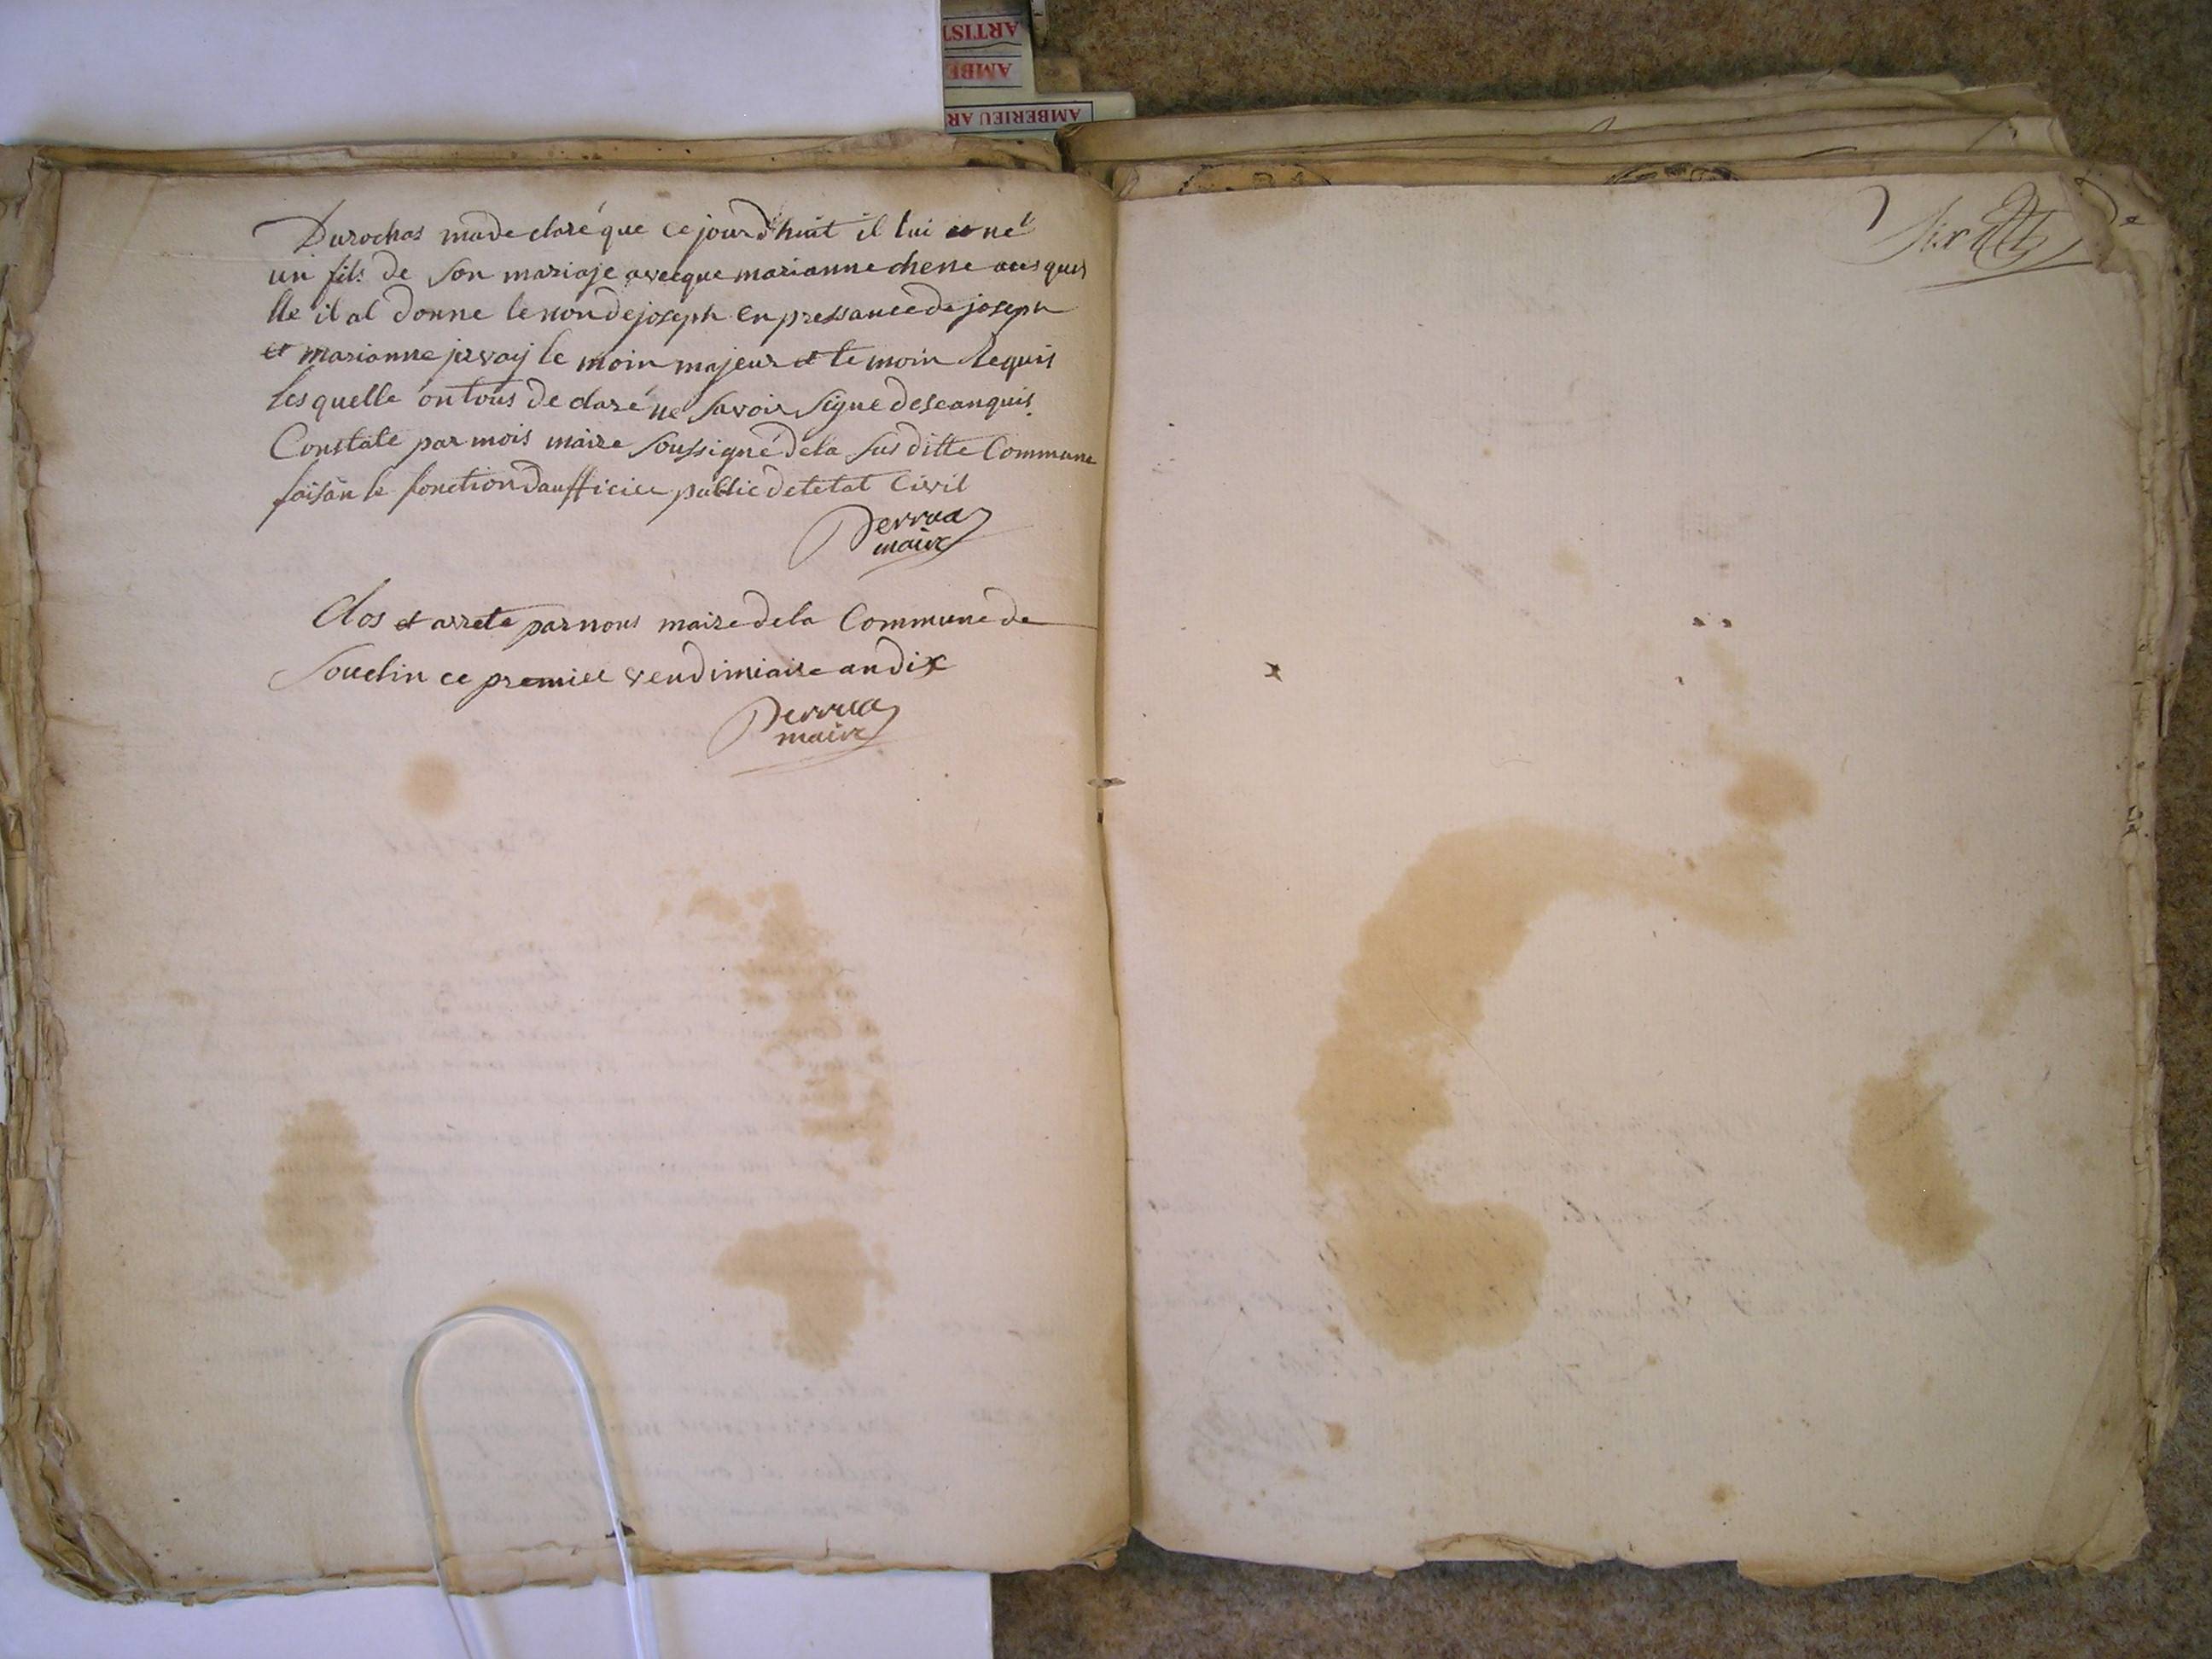 ARTIST
AMBE
AMBERIEU AR
Durochas ma declaré que ce jourd'huit il lui et né
un fils de son mariaje avecque marianne chene aus quel
lle il al donne le non de joseph en pressance de joseph
et marianne jervaij te moin majeur et te moin Requis
les quelle on tous de claré ne savoir signe de se anquis
Constate par mois maire soussigné de la sus ditte Commune
faisan le fonction d'aufficiee public de tetat Civil
Perruca
maire
Clos et arrete par nous maire de la Commune de
Souclin ce premiee vendimiaire an dix
Perruca
maire